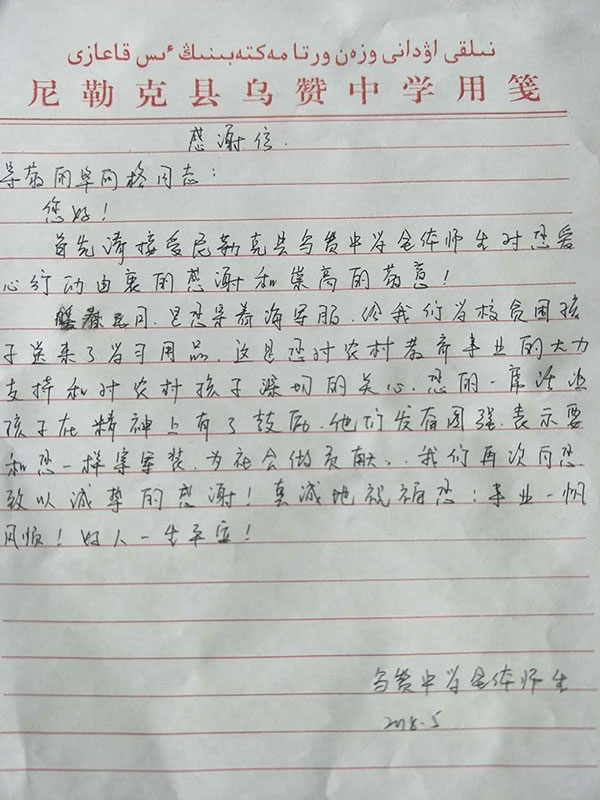 نىلقى اۋدانى وزەن ورتا مەكتەبىنىڭ ءىس قاعازى
尼勒克县乌赞中学用笺
感谢信.
尊敬的单同格同志：
您好！
首先请接受尼勒克县乌赞中学全体师生对您爱
心行动由衷的感谢和崇高的敬意！
月.是您穿着海军服.给我们学校贫困孩
子送来了学习用品.这是您对农村教育事业的大力
支持和对农村孩子深切的关心.您的一席话让
孩子在精神上有了鼓励.他们发奋图强.表示要
和您一样穿军装.为社会做贡献..我们再次向您
致以诚挚的感谢！真诚地祝福您：事业一帆
风顺！好人一生平安！
乌赞中学全体师生
2018.5